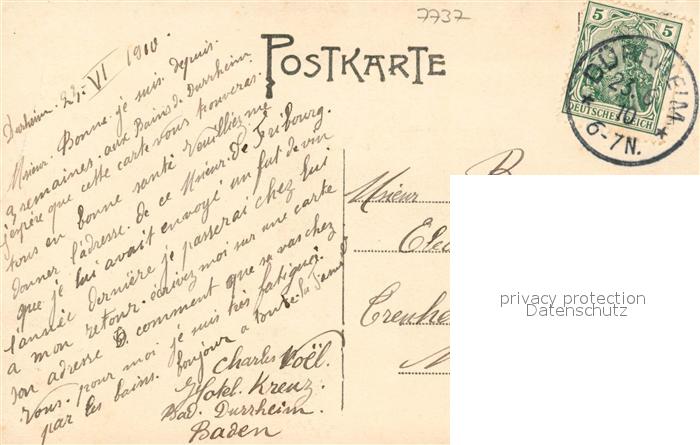 7737
POSTKARTE
5
DEUTSCHES REICH
DÜRRHEIM
23. 6
10
6-7N.
Durrheim. 23. VI 1910
Msieur. Bonne. je suis. depuis.
3 semaines. aux Bains d. Durrheim
j'espère que cette carte vous trouveras.
tous en bonne santé Veuilliez me
donner l'adresse. de ce Msieur. de Fribourg.
que je lui avait envoyé un fut de vin
l'année dernière je passerai chez lui
a mon retour. écrivez moi sur une carte
son adresse & comment que sa vas chez
Vous. pour moi je suis très fatigué.
par les bains. bonjour a toute la famille
Charles Noël.
Hotel. Kreuz.
Bad. Durrheim.
Baden
Msieur B
Creuhe
privacy protection
Datenschutz